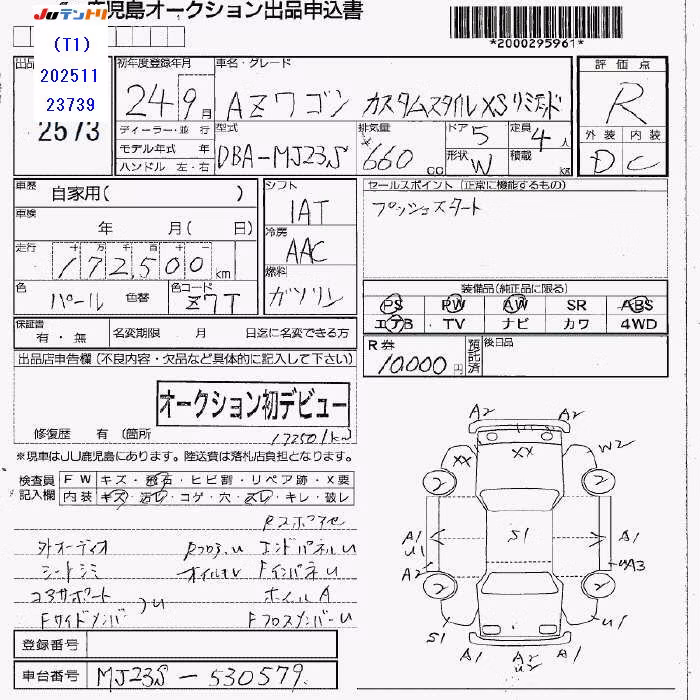 JUテントリ 鹿児島オークション出品申込書
(T1)
202511
23739
*2000295961*
出品
2573
初年度登録年月
24 9月
車名・グレード
AZワゴン カスタムスタイルXSリミテッド
評価点
R
外装 内装
D C
ディーラー・並行
モデル年式 年
ハンドル 左・右
型式
DBA-MJ23S
排気量
660 cc
ドア 5
形状 W
定員 4人
積載 kg
車歴 自家用( )
車検 年 月( 日)
走行 十 万 千 百 十 一
172,500 km
色 パール 色替
色コード Z7T
シフト
IAT
冷房
AAC
燃料
ガソリン
セールスポイント(正常に機能するもの)
プッシュスタート
装備品(純正品に限る)
PS PW AW SR ABS
エアB TV ナビ カワ 4WD
保証書 有・無
名変期限 月 日迄に名変できる方
R券 10,000円
預託済
後日品
出品店申告欄(不良内容・欠品など具体的に記入して下さい)
オークション初デビュー
修復歴 有 (箇所
172501km
※現車はJU鹿児島にあります。陸送費は落札店負担となります。
検査員記入欄
FW キズ・飛石・ヒビ割・リペア跡・X要
内装 キズ・汚レ・コゲ・穴・スレ・キレ・破レ
外オーディオ
RフロアU エンドパネルU
シートシミ オイルモレ FインパネU
コアサポート
FサイドメンバーU
ホイルA
FクロスメンバーU
A2 A2
XX XX W2
2 2
A1 U1 S1 A1
A2 UA3
2 2
S1 U1
A1 A2 U2 A1
登録番号
車台番号 MJ23S-530579